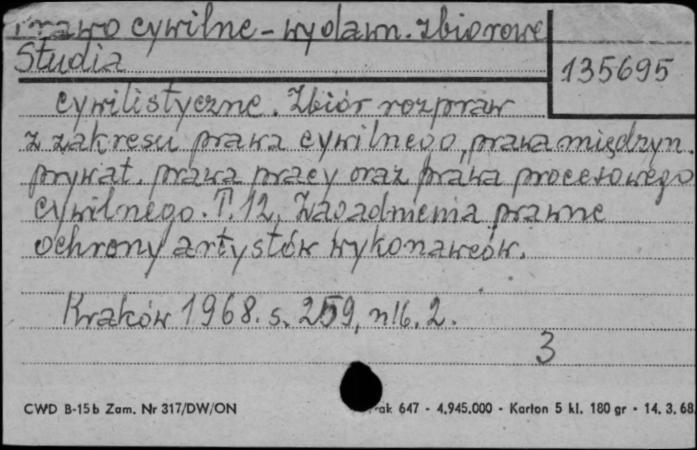 Prawo cywilne - wydawn. zbiorowe
Studia
135695
cywilistyczne. Zbiór rozpraw
z zakresu prawa cywilnego, prawa międzyn.
prywat. prawa pracy oraz prawa procesowego
cywilnego. T. 12, Zagadnienia prawne
ochrony artystów wykonawców.
Kraków 1968. s. 259, nlb. 2.
3
CWD B-15b Zam. Nr 317/DW/ON
ak 647 - 4.945.000 - Karton 5 kl. 180 gr - 14. 3. 68